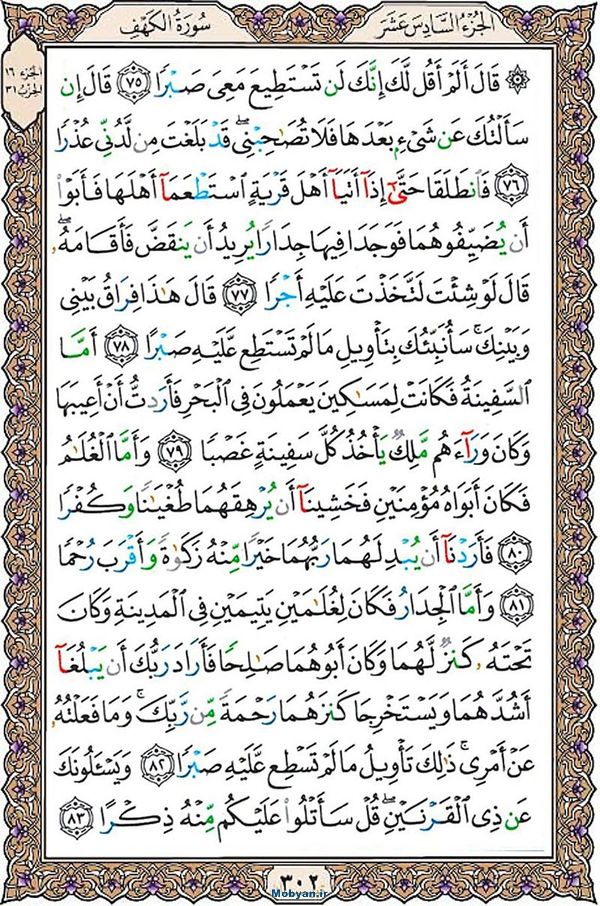 الجُزءُ السَّادِسَ عَشَرَ
سُورَةُ الكَهْفِ
الجُزء ١٦
الحِزب ٣١
۞ قَالَ أَلَمْ أَقُل لَّكَ إِنَّكَ لَن تَسْتَطِيعَ مَعِيَ صَبْرًا ﴿٧٥﴾ قَالَ إِن
سَأَلْتُكَ عَن شَىْءٍۭ بَعْدَهَا فَلَا تُصَـٰحِبْنِى ۖ قَدْ بَلَغْتَ مِن لَّدُنِّى عُذْرًا
﴿٧٦﴾ فَٱنطَلَقَا حَتَّىٰٓ إِذَآ أَتَيَآ أَهْلَ قَرْيَةٍ ٱسْتَطْعَمَآ أَهْلَهَا فَأَبَوْا۟
أَن يُضَيِّفُوهُمَا فَوَجَدَا فِيهَا جِدَارًا يُرِيدُ أَن يَنقَضَّ فَأَقَامَهُۥ ۖ
قَالَ لَوْ شِئْتَ لَتَّخَذْتَ عَلَيْهِ أَجْرًا ﴿٧٧﴾ قَالَ هَـٰذَا فِرَاقُ بَيْنِى
وَبَيْنِكَ ۚ سَأُنَبِّئُكَ بِتَأْوِيلِ مَا لَمْ تَسْتَطِع عَّلَيْهِ صَبْرًا ﴿٧٨﴾ أَمَّا
ٱلسَّفِينَةُ فَكَانَتْ لِمَسَـٰكِينَ يَعْمَلُونَ فِى ٱلْبَحْرِ فَأَرَدتُّ أَنْ أَعِيبَهَا
وَكَانَ وَرَآءَهُم مَّلِكٌ يَأْخُذُ كُلَّ سَفِينَةٍ غَصْبًا ﴿٧٩﴾ وَأَمَّا ٱلْغُلَـٰمُ
فَكَانَ أَبَوَاهُ مُؤْمِنَيْنِ فَخَشِينَآ أَن يُرْهِقَهُمَا طُغْيَـٰنًا وَكُفْرًا
﴿٨٠﴾ فَأَرَدْنَآ أَن يُبْدِلَهُمَا رَبُّهُمَا خَيْرًا مِّنْهُ زَكَوٰةً وَأَقْرَبَ رُحْمًا
﴿٨١﴾ وَأَمَّا ٱلْجِدَارُ فَكَانَ لِغُلَـٰمَيْنِ يَتِيمَيْنِ فِى ٱلْمَدِينَةِ وَكَانَ
تَحْتَهُۥ كَنزٌ لَّهُمَا وَكَانَ أَبُوهُمَا صَـٰلِحًا فَأَرَادَ رَبُّكَ أَن يَبْلُغَآ
أَشُدَّهُمَا وَيَسْتَخْرِجَا كَنزَهُمَا رَحْمَةً مِّن رَّبِّكَ ۚ وَمَا فَعَلْتُهُۥ
عَنْ أَمْرِى ۚ ذَٰلِكَ تَأْوِيلُ مَا لَمْ تَسْطِع عَّلَيْهِ صَبْرًا ﴿٨٢﴾ وَيَسْـَٔلُونَكَ
عَن ذِى ٱلْقَرْنَيْنِ ۖ قُلْ سَأَتْلُوا۟ عَلَيْكُم مِّنْهُ ذِكْرًا ﴿٨٣﴾
٣٠٢
Mobyan.ir